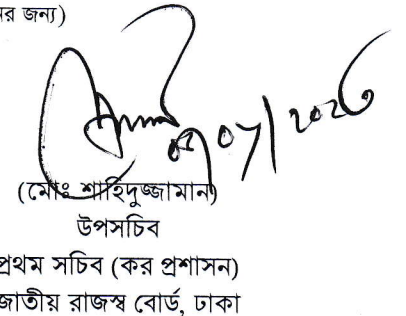 জন্য)
(মোঃ শাহিদুজ্জামান)
উপসচিব
প্রথম সচিব (কর প্রশাসন)
জাতীয় রাজস্ব বোর্ড, ঢাকা